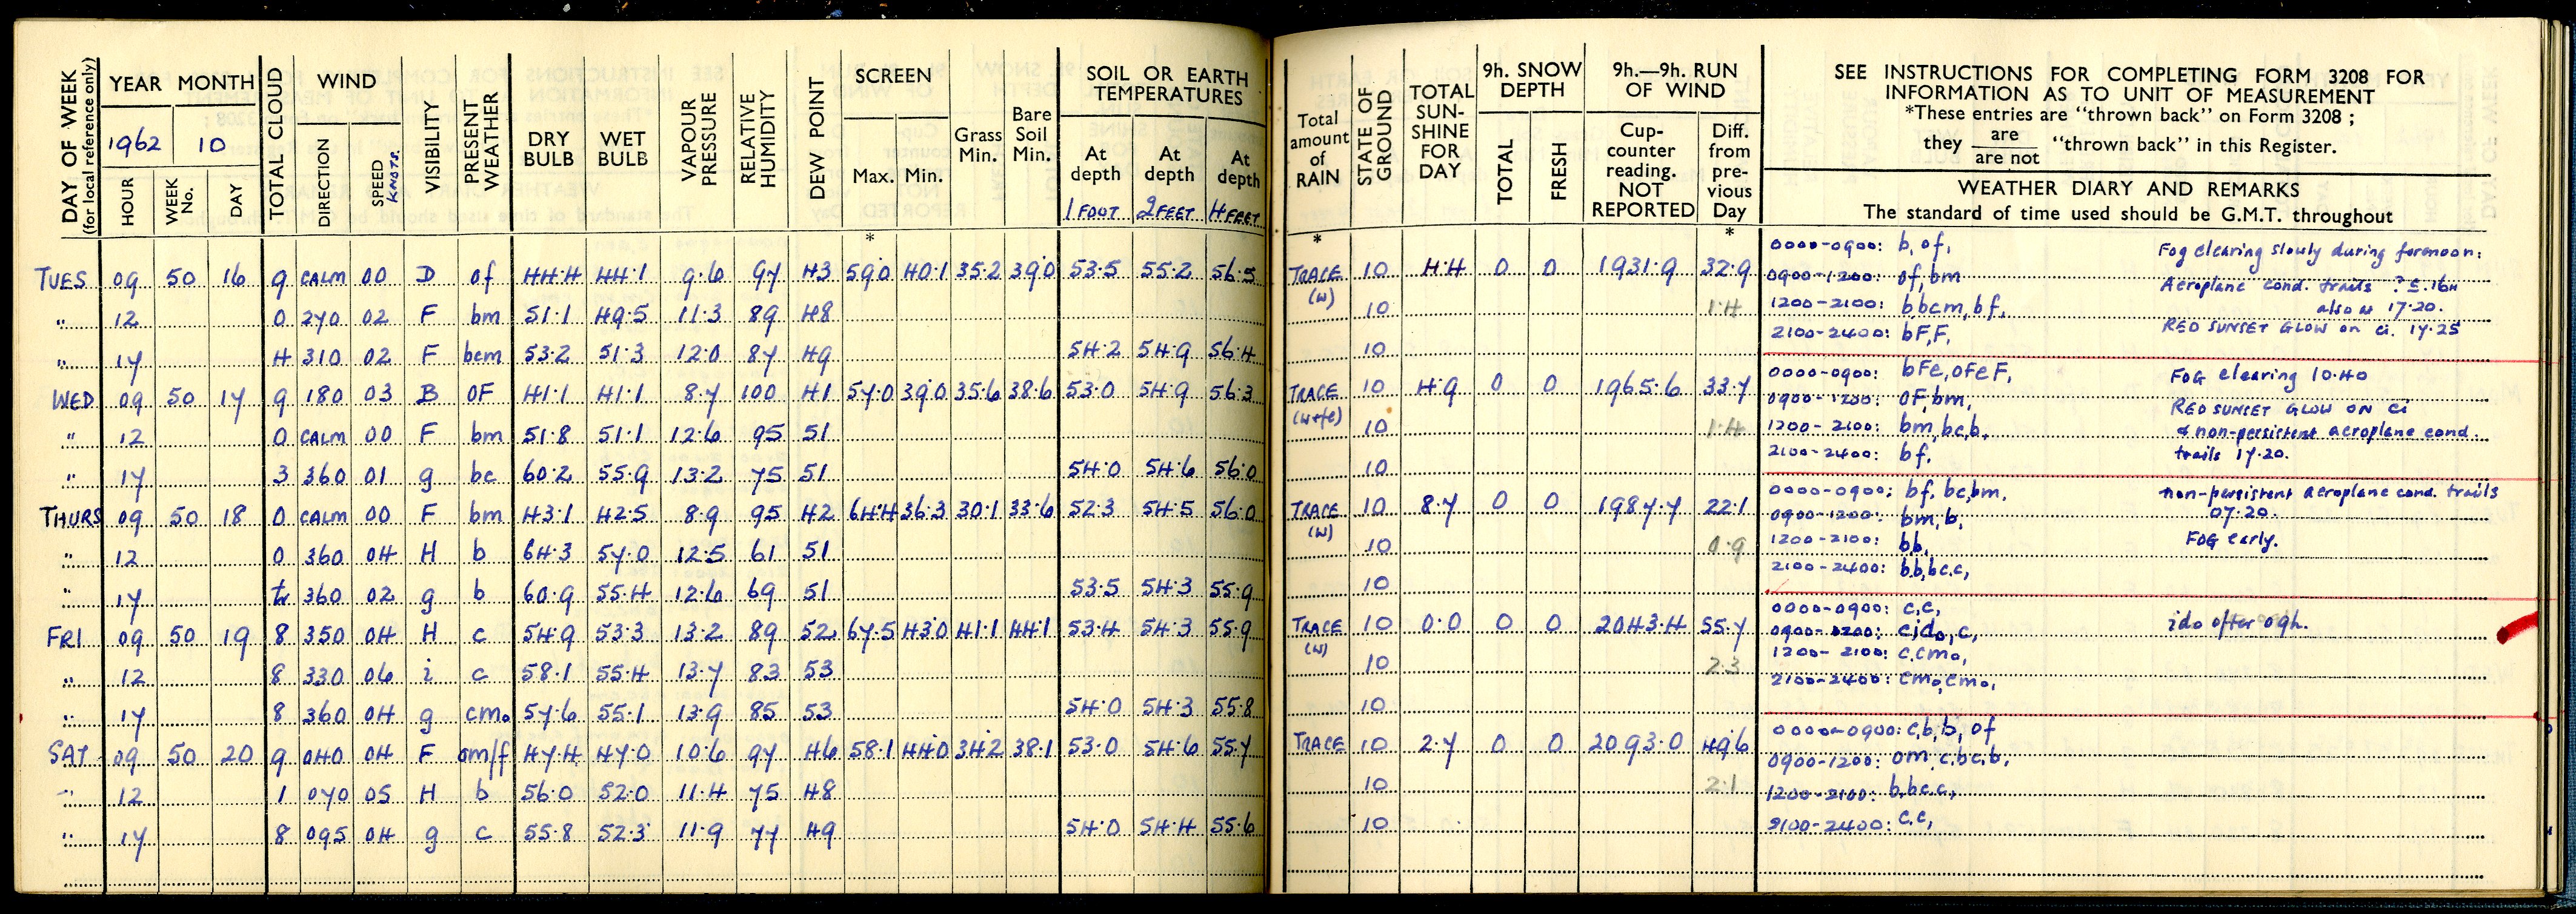 DAY OF WEEK
(for local reference only)
YEAR MONTH
1962 10
HOUR WEEK No. DAY
TOTAL CLOUD
WIND
DIRECTION SPEED KNOTS.
VISIBILITY
PRESENT WEATHER
DRY BULB WET BULB
VAPOUR PRESSURE
RELATIVE HUMIDITY
DEW POINT
SCREEN
Max. Min.
*
Grass Min.
Bare Soil Min.
SOIL OR EARTH TEMPERATURES
At depth At depth At depth
1 FOOT 2 FEET 4 FEET
Total amount of RAIN
*
STATE OF GROUND
TOTAL SUN-SHINE FOR DAY
9h. SNOW DEPTH
TOTAL FRESH
9h.—9h. RUN OF WIND
Cup-counter reading. NOT REPORTED
Diff. from pre-vious Day
*
SEE INSTRUCTIONS FOR COMPLETING FORM 3208 FOR
INFORMATION AS TO UNIT OF MEASUREMENT
*These entries are "thrown back" on Form 3208 ;
they are / are not "thrown back" in this Register.
WEATHER DIARY AND REMARKS
The standard of time used should be G.M.T. throughout
TUES 09 50 16 9 CALM 00 D of 44.4 44.1 9.6 97 43 59.0 40.1 35.2 39.0 53.5 55.2 56.5 TRACE (w) 10 4.4 0 0 1931.9 32.9
" 12 0 270 02 F bm 51.1 49.5 11.3 89 48 10 1.4
" 17 4 310 02 F bcm 53.2 51.3 12.0 87 49 54.2 54.9 56.4 10
0000-0900: b, of, Fog clearing slowly during forenoon:
0900-1200: of, bm Aeroplane cond. trails ? E. 164
1200-2100: bbcm, bf, also at 17.20.
2100-2400: bF,F, RED SUNSET GLOW on ci. 17.25
WED 09 50 17 9 180 03 B OF 41.1 41.1 8.7 100 41 57.0 39.0 35.6 38.6 53.0 54.9 56.3 TRACE (w+fe) 10 4.9 0 0 1965.6 33.7
" 12 0 CALM 00 F bm 51.8 51.1 12.6 95 51 10 1.4
" 17 3 360 01 g bc 60.2 55.9 13.2 75 51 54.0 54.6 56.0 10
0000-0900: bFe, oFe F, FOG clearing 10.40
0900-1200: OF, bm, RED SUNSET GLOW ON Ci
1200-2100: bm, bc,b, & non-persistent aeroplane cond.
2100-2400: bf, trails 17.20.
THURS 09 50 18 0 CALM 00 F bm 43.1 42.5 8.9 95 42 64.4 36.3 30.1 33.6 52.3 54.5 56.0 TRACE (w) 10 8.7 0 0 1987.7 22.1
" 12 0 360 04 H b 64.3 57.0 12.5 61 51 10 0.9
" 17 tr 360 02 g b 60.9 55.4 12.6 69 51 53.5 54.3 55.9 10
0000-0900: bf, bc,bm, non-persistent aeroplane cond. trails
0900-1200: bm, b, 07.20.
1200-2100: bb, FOG early.
2100-2400: b,b,bc,c,
FRI 09 50 19 8 350 04 H c 54.9 53.3 13.2 89 52 67.5 43.0 41.1 44.1 53.4 54.3 55.9 TRACE (w) 10 0.0 0 0 2043.4 55.7
" 12 8 330 06 i c 58.1 55.4 13.7 83 53 10 2.3
" 17 8 360 04 g cmo 57.6 55.1 13.9 85 53 54.0 54.3 55.8 10
0000-0900: c,c,
0900-1200: c,ido, c, ido after 09h.
1200-2100: c,cmo,
2100-2400: cmo,cmo,
SAT 09 50 20 9 040 04 F om/f 47.4 47.0 10.6 97 46 58.1 44.0 34.2 38.1 53.0 54.6 55.7 TRACE 10 2.7 0 0 2093.0 49.6
" 12 1 070 05 H b 56.0 52.0 11.4 75 48 10 2.1
" 17 8 095 04 g c 55.8 52.3 11.9 77 49 54.0 54.4 55.6 10
0000-0900: c,b, b, of
0900-1200: om, c,bc,b,
1200-2100: b,bc,c,
2100-2400: c.c,